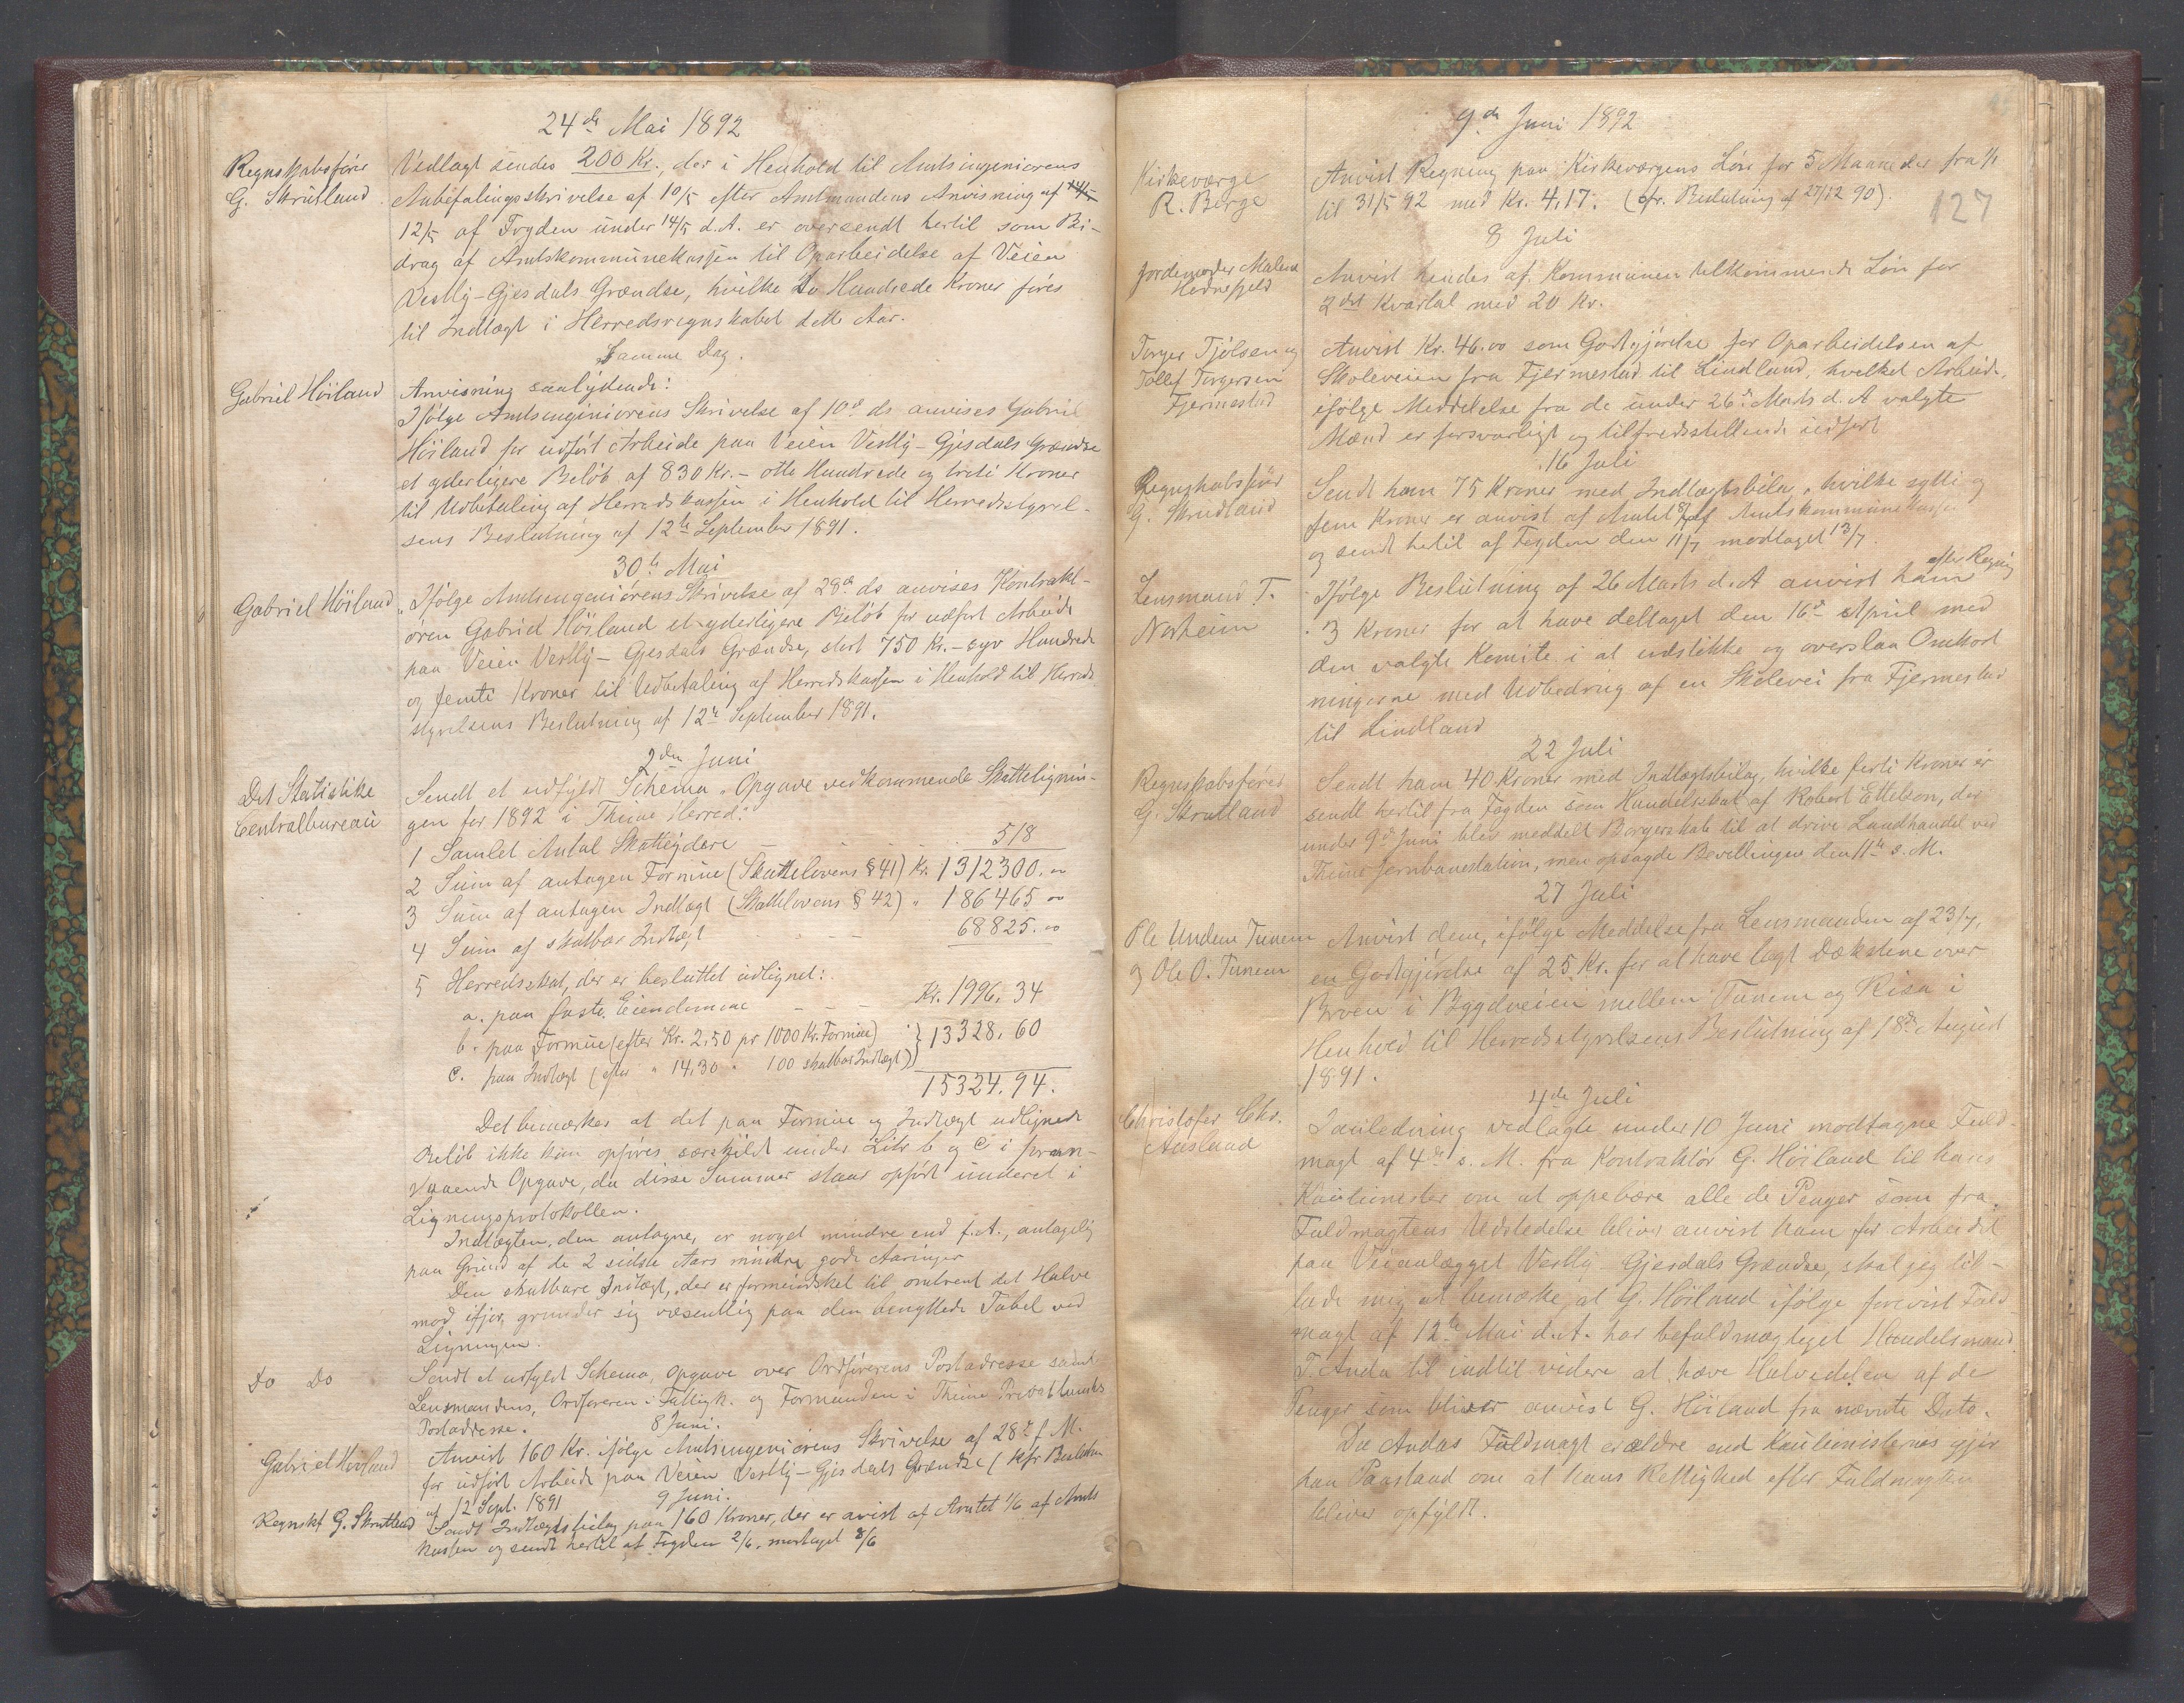 24de Mai 1892
Regnskabsfører
G. Skrudland
Vedlagt sendes 200 Kr., der i Henhold til Amtsingeniørens
Anbefalingsskrivelse af 10/5 efter Amtmandens Anvisning af 14/5
12/5 af Fogden under 14/5 d.A. er oversendt hertil som Bi-
drag af Amtskommunekassen til Oparbeidelse af Veien
Vestly-Gjesdals Grændse, hvilke To Hundrede Kroner føres
til Indtægt i Herredsregnskabet dette Aar.
Samme Dag.
Gabriel Höiland
Anvisning saalydende:
Ifølge Amtsingeniørens Skrivelse af 10de ds anvises Gabriel
Höiland for udført Arbeide paa Veien Vestly-Gjesdals Grændse
et yderligere Beløb af 830 Kr.- otte Hundrede og treti Kroner
til Udbetaling af Herredskassen i Henhold til Herredsstyrel-
sens Beslutning af 12te September 1891.
30te Mai
Gabriel Höiland
"Ifølge Amtsingeniørens Skrivelse af 28de ds anvises Kontrakt-
øren Gabriel Höiland et yderligere Beløb for udført Arbeide
paa Veien Vestly-Gjesdals Grændse, stort 750 Kr.- syv Hundrede
og femti Kroner til Udbetaling af Herredskassen i Henhold til Herreds
styrelsens Beslutning af 12te September 1891.
2den Juni
Det Statistiske
Centralbureau
Sendt et udfyldt Schema "Opgave vedkommende Skatteligning-
gen for 1892 i Thime Herred:"
1 Samlet Antal Skatteydere 518
2 Sum af antagen Formue (Skattelovens § 41) Kr. 1312300.00
3 Sum af antagen Indtægt (Skattelovens § 42) " 186465 00
4 Sum af skatbar Indtægt 68825.00
5 Herredsskat, der er besluttet udlignet:
a. paa faste Eiendomme Kr. 1996.34
b. paa Formue (efter Kr. 2,50 pr 1000 Kr. Formue) } 13328.60
c. paa Indtægt (efter " 14,30 " 100 skatbar Indtægt)
15324.94.
Det bemærkes at det paa Formue og Indtægt udlignede
Beløb ikke kan opføres særskildt under Litr b og c i foran-
staaende Opgave, da disse Summer staar opført underet i
Ligningsprotokollen.
Indtægten, den antagne, er noget mindre end f.A., antagelig
paa Grund af de 2 sidste Aars mindre gode Aaringer
Den skatbare Indtægt, der er formindsket til omtrent det Halve
mod ifjor, grunder sig væsentlig paa den benyttede Tabel ved
Ligningen.
Do Do
Sendt et udfyldt Schema, Opgave over Ordførerens Postadresse samt
Lensmandens, Ordføreren i Fattigk. og Formanden i Thime
Postadresse.
8 Juni.
Gabriel Höiland
Anvist 160 Kr. ifølge Amtsingeniørens Skrivelse af 28de f.M.
for udført Arbeide paa Veien Vestly-Gjesdals Grændse (kfr Beslutn
af 12 Sept. 1891
9 Juni.
Regnskf G. Skrudland
Sendt Indtægtsbilag paa 160 Kroner, der er avist af Amtet 1/6 af Amts
kassen og sendt hertil af Fogden 2/6, modtaget 8/6
9de Juni 1892
127
Kirkeværge
R. Berge
Anvist Regning paa Kirkeværgens Løn for 5 Maaneder fra 1/1
til 31/5 92 med Kr. 4,17. (cfr. Beslutning af 27/12 90).
8 Juli
Jordemoder Malene
Hednefjeld
Anvist hendes af Kommunen tilkommende Løn for
2det Kvartal med 20 Kr.
Torger Tjölsen og
Tollef Torgersen
Fjermestad
Anvist Kr. 46.00 som Godtgjørelse for Oparbeidelsen af
Skoleveien fra Fjermestad til Lindland, hvilket Arbeide,
ifølge Meddelelse fra de under 26de Marts d.A valgte
Mænd er forsvarligt og tilfredsstillende udført
16 Juli
Regnskabsfører
G. Skrudland
Sendt ham 75 Kroner med Indtægtsbilag, hvilke sytti og
fem Kroner er anvist af Amtet af Amtskommunekassen
og sendt hertil af Fogden den 11/7 modtaget 13/7.
Lensmand T.
Norheim
Ifølge Beslutning af 26 Marts d.A anvist ham efter Regning
3 Kroner for at have deltaget den 16de April med
den valgte Komite i at udstikke og overslaa Omkost
ningerne med Udbedring af en Skolevei fra Fjermestad
til Lindland
22 Juli
Regnskabsfører
G. Skrudland
Sendt ham 40 Kroner med Indtægtsbilag, hvilke førti Kroner er
sendt hertil fra Fogden som Handelsskat af Robert Ettelson, der
under 9de Juni blev meddelt Borgerskab til at drive Landhandel ved
Thime Jernbanestation, men opsagde Bevillingen den 11te s.M.
27 Juli
Ole Undem Tunem
og Ole O. Tunem
Anvist dem, ifølge Meddelse fra Lensmanden af 23/7,
en Godtgjørelse af 25 Kr. for at have lagt Dækstene over
Broen i Bygdveien mellem Tunem og Risa i
Henhold til Herredsstyrelsens Beslutning af 18de August
1891.
4de Juli
Christofer Chr.
Aasland
I anledning vedlagte under 10 Juni modtagne Fuld-
magt af 4de s.M. fra Kontraktør G. Höiland til hans
Kautionister om at oppebære alle de Penger som fra
Fuldmagtens Udstedelse bliver anvist ham for Arbeidet
paa Veianlægget Vestly Gjesdals Grændse, skal jeg til-
lade mig at bemærke, at G. Höiland ifølge forevist Fuld
magt af 12te Mai d.A. har befuldmægtiget Handelsmand
T. Anda til indtil videre at hæve Halvedelen af de
Penger som bliver anvist G. Höiland fra nævnte Dato.
Da Andas Fuldmagt er ældre end Kautionisternes gjør
han Paastand om at hans Rettighed efter Fuldmagten
bliver opfyldt.